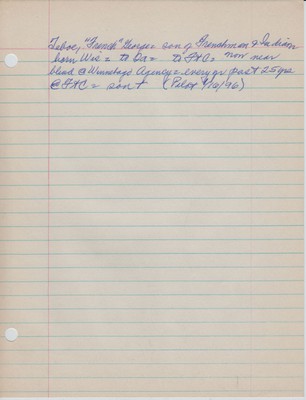 Leboe, "French" George = son of Frenchman & Indian
born Wis = to Da = to St C = now near
blind @ Winnebago Agency = every yr past 25 yrs
@ St C = son t (Pilot 9/10/96)